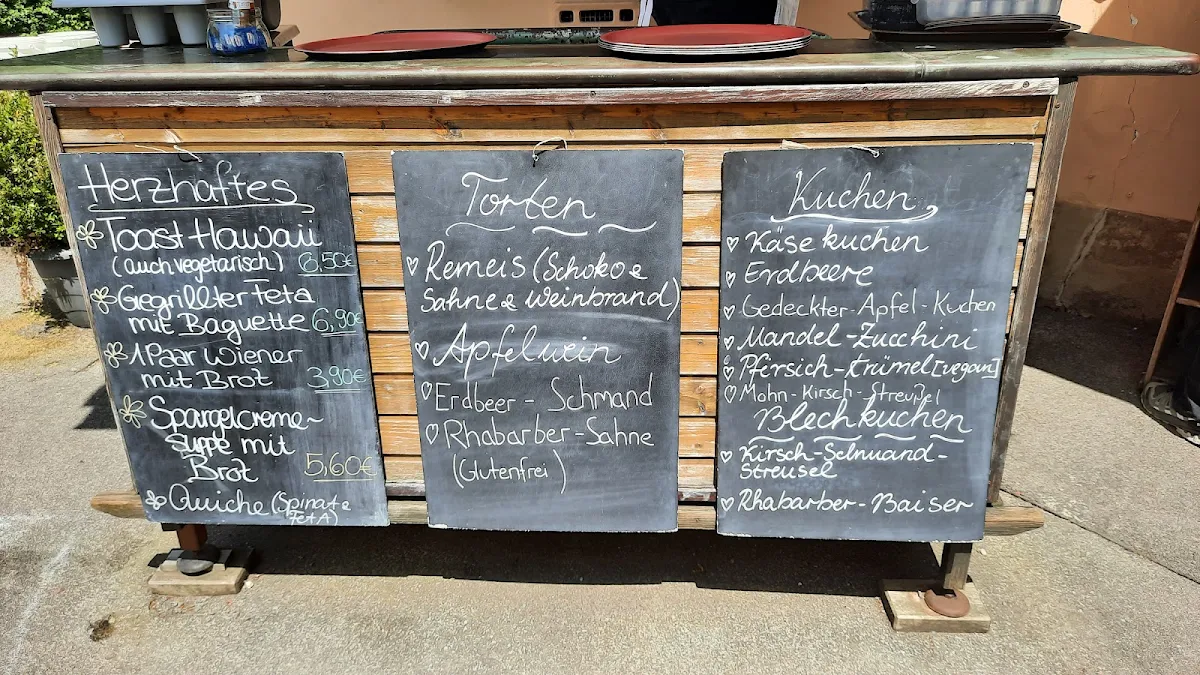 Herzhaftes
Toast Hawaii
(auch vegetarisch) 6,50€
Gegrillter Feta
mit Baguette 6,90€
1 Paar Wiener
mit Brot 3,90€
Spargelcreme-
suppe mit
Brot 5,60€
Quiche (Spinat &
FetA)
Torten
Remeis (Schoko &
Sahne & Weinbrand)
Apfelwein
Erdbeer - Schmand
Rhabarber-Sahne
(Glutenfrei)
Kuchen
Käse kuchen
Erdbeere
Gedeckter-Apfel-Kuchen
Mandel-Zucchini
Pfirsich-Krümel [vegan]
Mohn-Kirsch-Streußel
Blechkuchen
Kirsch-Schmand-
Streusel
Rhabarber-Baiser